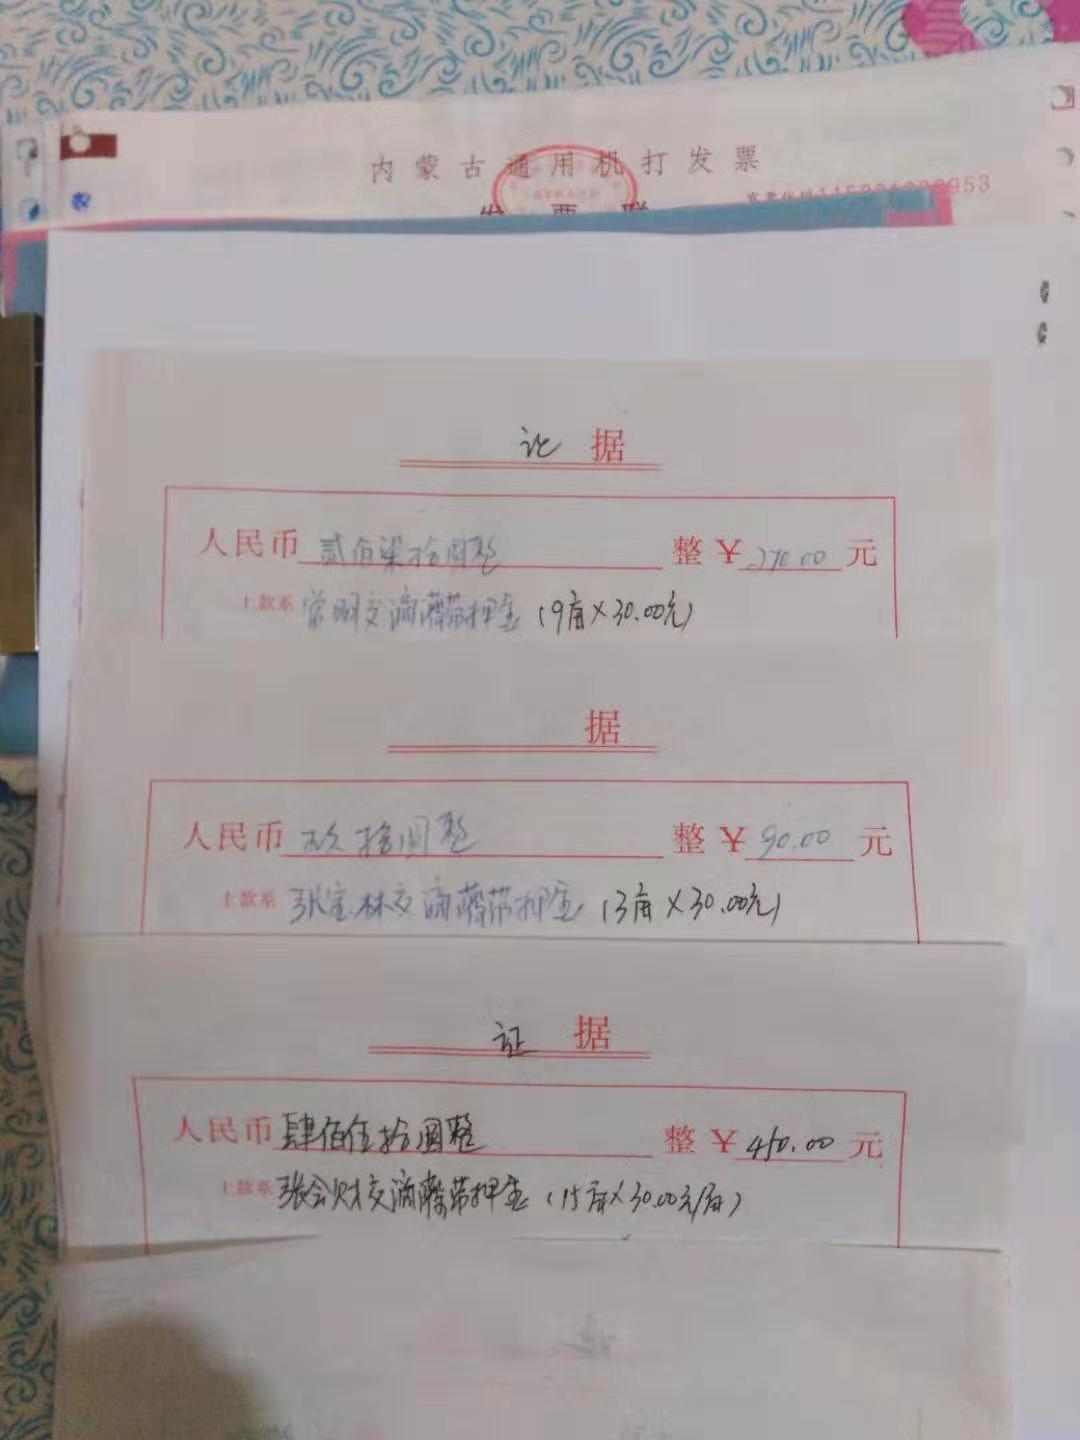 内蒙古通用机打发票
发票联
证 据
人民币 贰佰柒拾圆整 整 ¥ 270.00 元
上款系 常明交滴灌带押金 (9亩×30.00元)
据
人民币 玖拾圆整 整 ¥ 90.00 元
上款系 张宝林交滴灌带押金 (3亩×30.00元)
证 据
人民币 肆佰伍拾圆整 整 ¥ 450.00 元
上款系 张会财交滴灌带押金 (15亩×30.00元/亩)